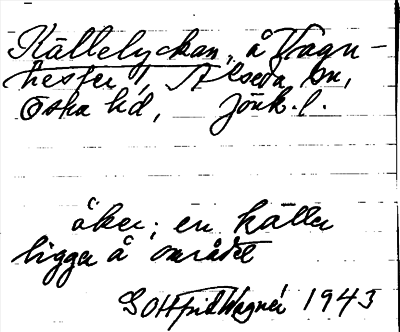 Källelyckan, å Vagn-
hester, Alseda sn,
Östra hd, Jönk. l.
åker; en källa
ligger å området
Gottfrid Wagnér 1943